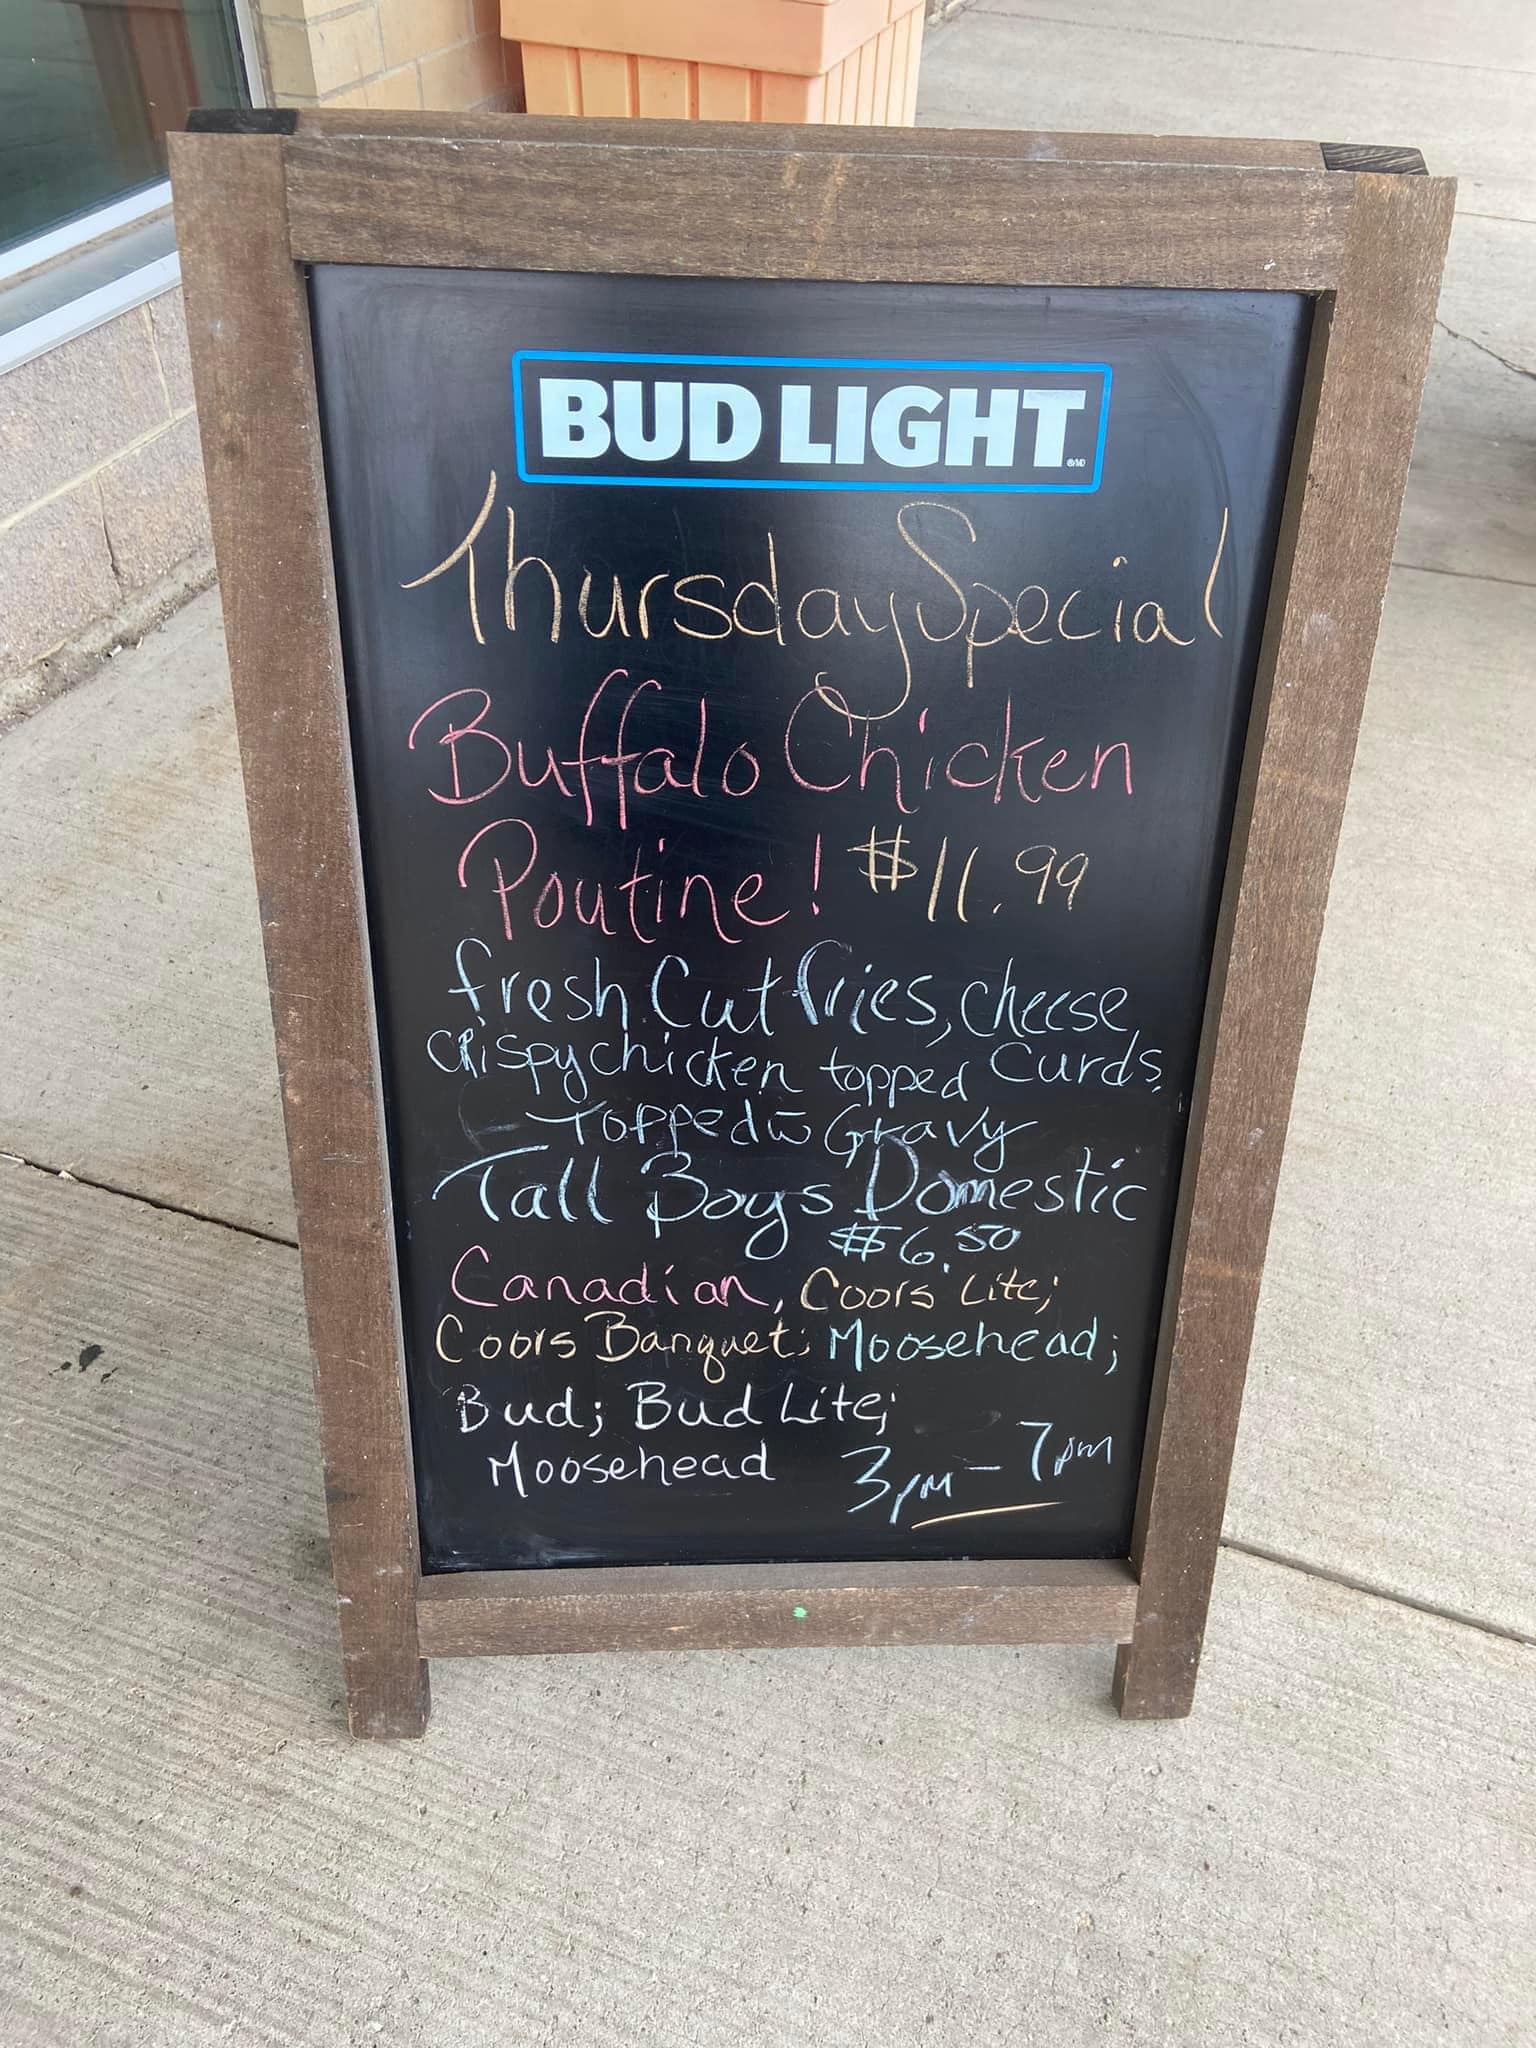 BUD LIGHT
Thursday Special
Buffalo Chicken
Poutine! $11.99
fresh Cut fries, cheese
crispy chicken topped Curds,
Topped w Gravy
Tall Boys Domestic
$6.50
Canadian, Coors Lite;
Coors Banquet; Moosehead;
Bud; Bud Lite;
Moosehead 3pm - 7pm